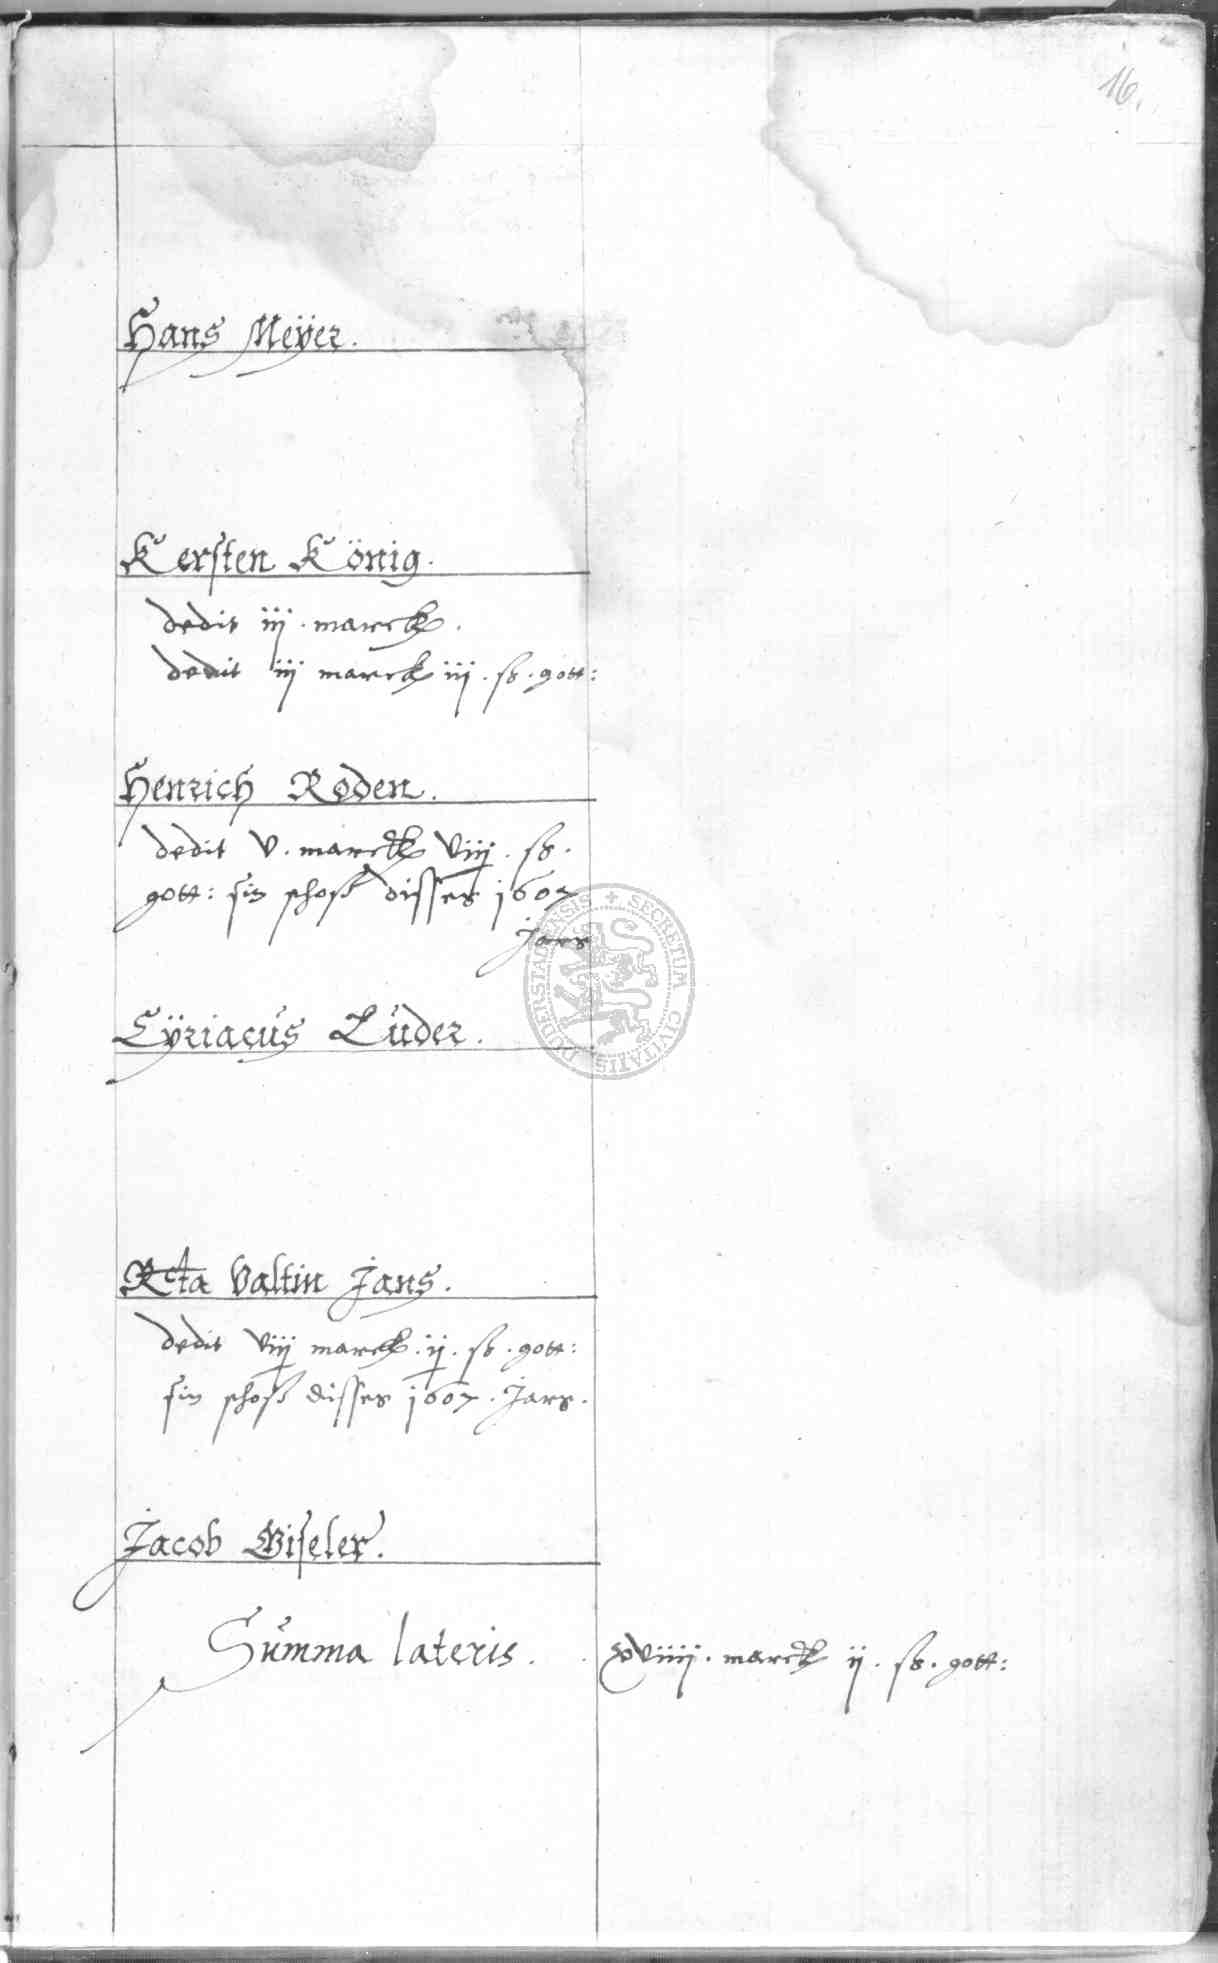 16.
Hans Meÿer.
Kersten König.
dedit iij . marck .
dedit iij marck iij . ß . gott:
Henrich Roden.
dedit v . marck viiij . ß .
gott: sin schoß disses 1607
Jars
Cÿriacus Luder.
Rcta Valtin Jans.
dedit viij marck . ij . ß . gott:
sin schoß disses 1607 . Jars .
Jacob Giseler.
Summa lateris . . xviiij . marck ij . ß . gott:
SECRETUM CIVITATIS DUDERSTADENSIS